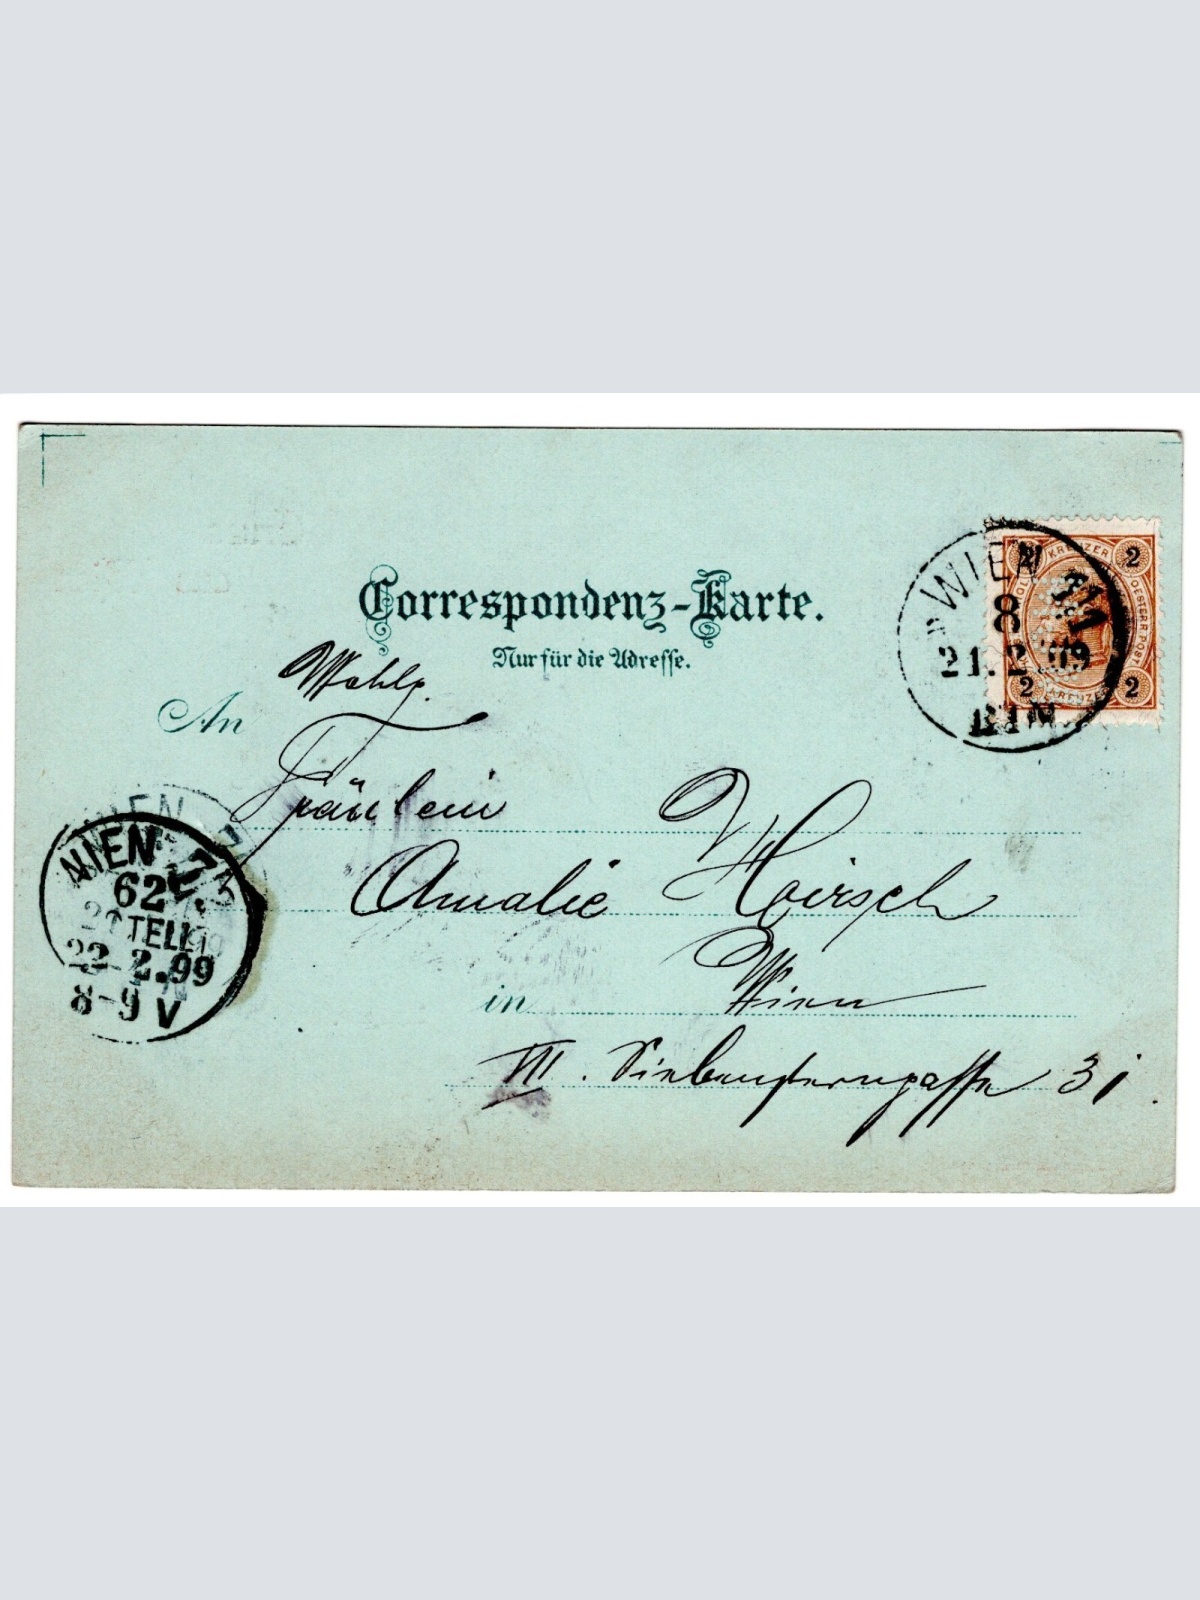 Correspondenz-Karte.
Nur für die Adresse.
Wohlg.
An
Fräulein
Amalie Hoirsch
in Wien
VII. Siebensterngasse 31.
WIEN
8
21.2.99
2 KREUZER 2
OESTERR. POST
2 2
WIEN 7
62
BESTELLT
22.2.99
8-9 V